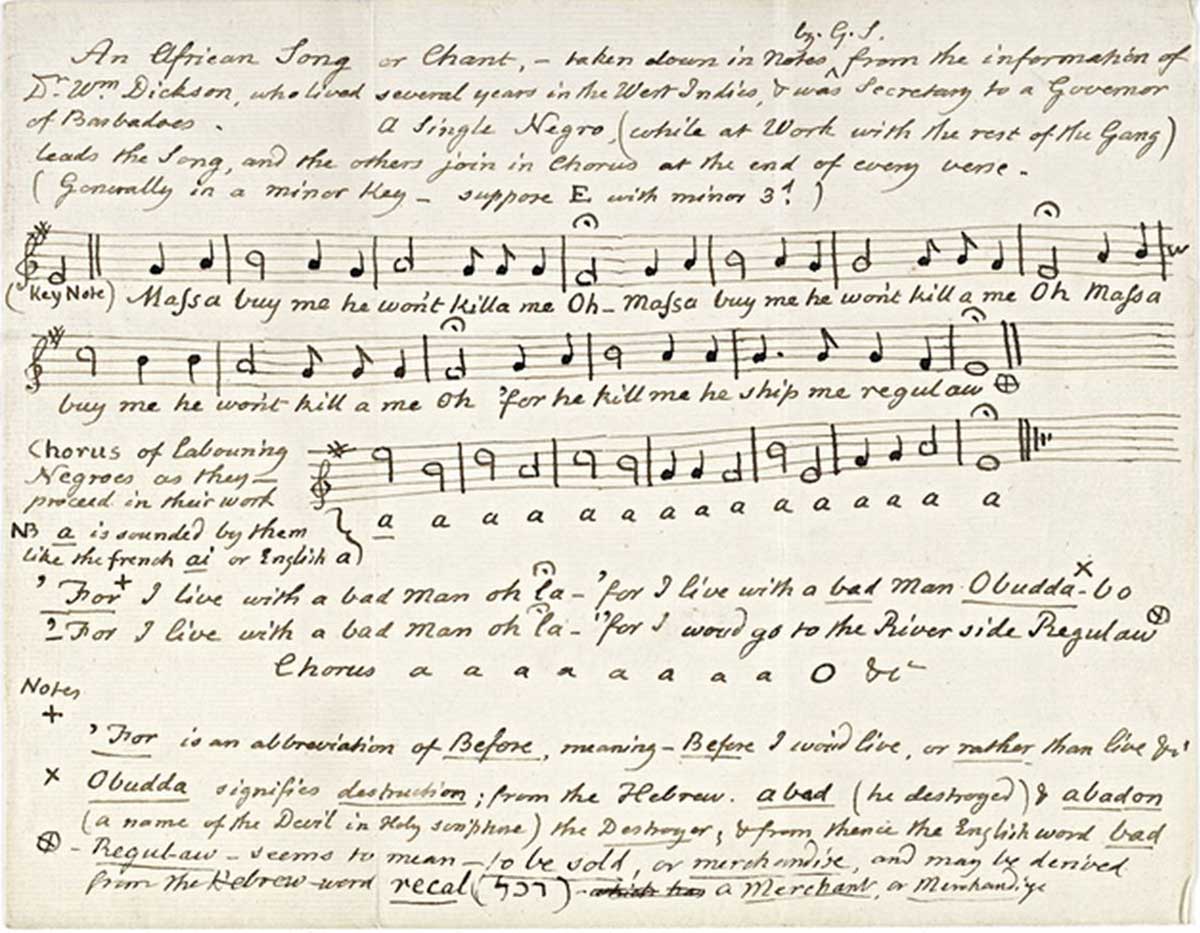 by. G. S.
An African Song or Chant, – taken down in Notes ^ from the information of
Dr. Wm. Dickson, who lived several years in the West Indies, & was Secretary to a Governor
of Barbadoes. A Single Negro, (while at Work with the rest of the Gang)
leads the Song, and the others join in Chorus at the end of every verse.
(Generally in a minor Key – suppose E with minor 3d.)
(Key Note) Maſsa buy me he won't killa me Oh – Maſsa buy me he won't kill a me Oh Maſsa
buy me he won't kill a me Oh 'for he kill me he ship me regulaw ⊕
Chorus of Labouring
Negroes as they –
proceed in their work
a a a a a a a a a a a a a
NB a is sounded by them
like the french ai or English a)
'For + I live with a bad man oh la – 'for I live with a bad Man Obudda x – bo
'– For I live with a bad man oh la – 'for I woud go to the River side Regulaw ⊗
Chorus a a a a a a a a O &c
Notes
+
'For is an abbreviation of Before, meaning – Before I wou'd live, or rather than live &c
x Obudda signifies destruction; from the Hebrew. abad (he destroyed) & abadon
(a name of the Devil in Holy scripture) the Destroyer; & from thence the English word bad
⊗ – Regulaw – seems to mean – to be sold, or merchandise, and may be derived
from the Hebrew word recal (רכל) which has a Merchant, or Merchandize